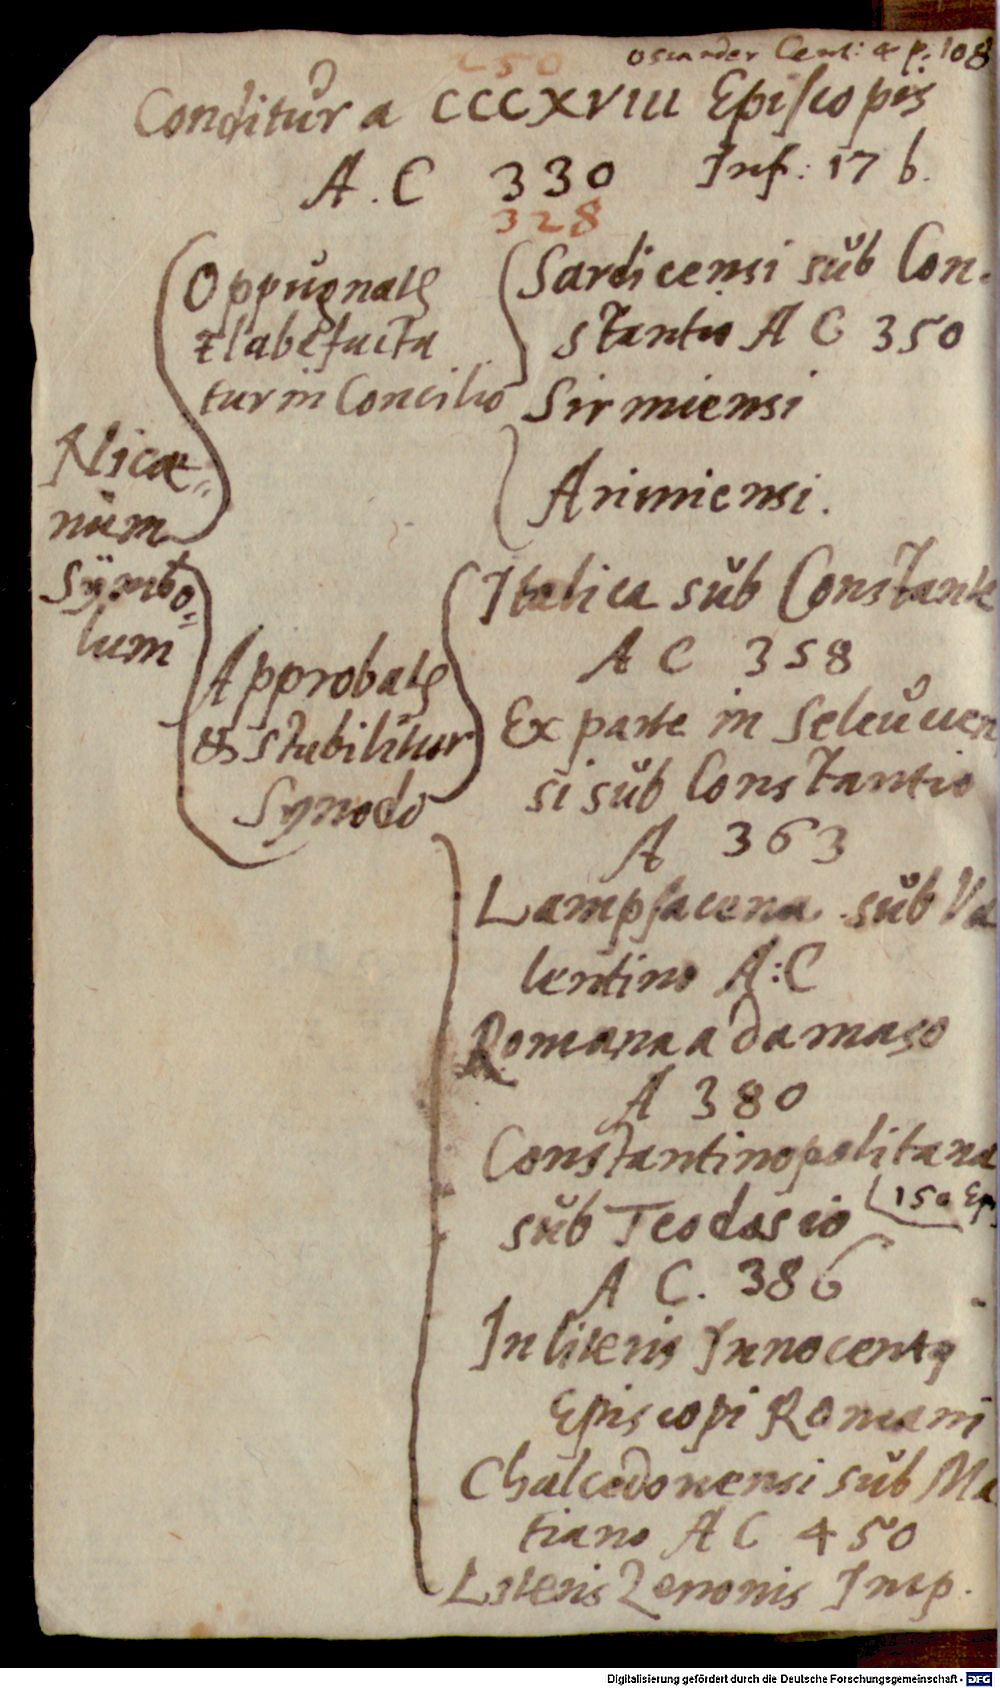 Osiander Cent: 4 p. 108
250
Conditur a CCCXVIII Episcopis
A. C 330 Inf: 17 b.
328
Oppugnatꝰ
labefacta
tur in Concilio
Sardicensi sub Con-
stantio A C 350
Sirmiensi
Arimiensi.
Nicæ=
num
Symbo=
lum
Approbatꝰ
& stabilitur
Synodo
Italica sub Constante
A C 358
Ex parte in Seleucien
si sub Constantio
A 363
Lampsacena sub Va
lentino A:C
Romana a Damaso
A 380
Constantinopolitana
sub Teodosio 150 Ep
A C. 386
In literis Innocentij
Episcopi Romani
Chalcedonensi sub Ma
tiano A C 450
Literis Zenonis Imp.
Digitalisierung gefördert durch die Deutsche Forschungsgemeinschaft - DFG